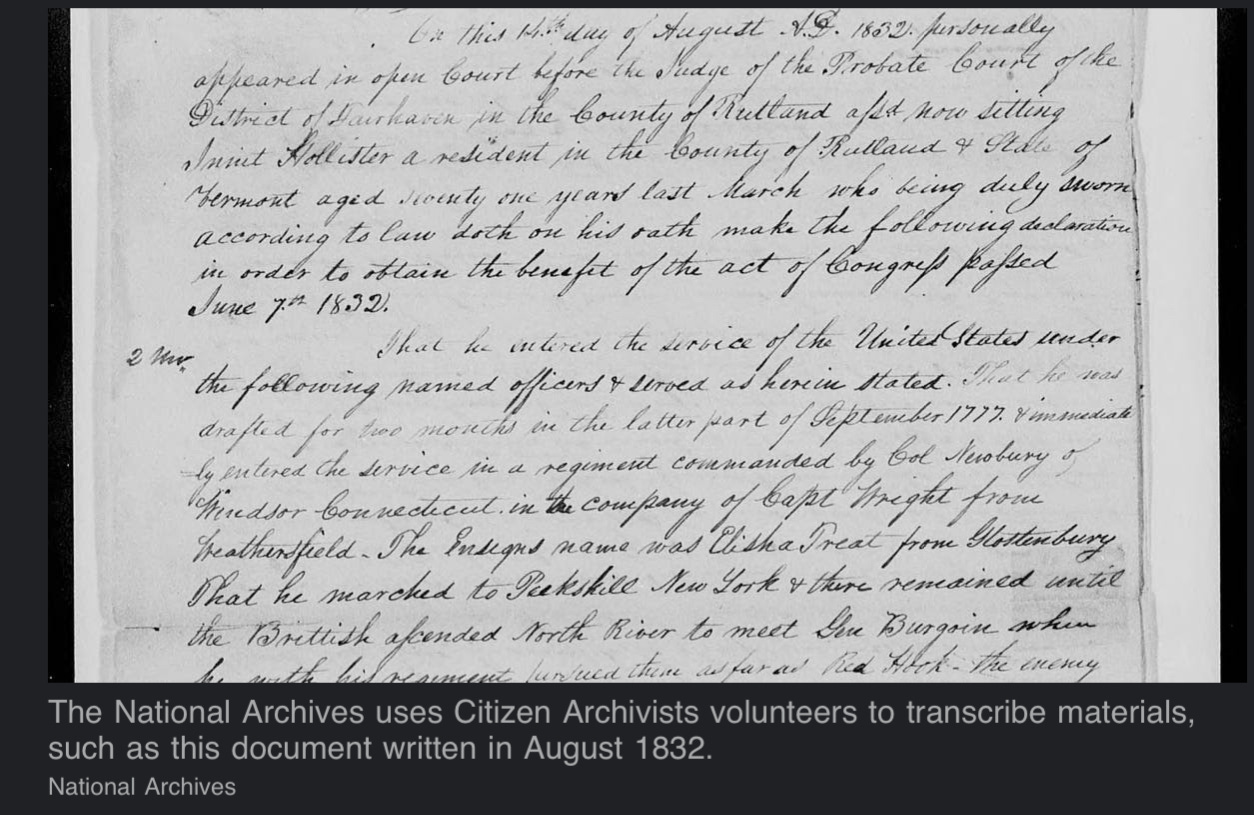 On this 14th day of August A.D. 1832. personally
appeared in open Court before the Judge of the Probate Court of the
District of Fairhaven in the County of Rutland afsd now sitting
Innit Hollister a resident in the County of Rutland & State of
Vermont aged seventy one years last March who being duly sworn
according to law doth on his oath make the following declaration
in order to obtain the benefit of the act of Congress passed
June 7th 1832.
That he entered the service of the United States under
2 Mo.
the following named officers & served as herein stated. That he was
drafted for two months in the latter part of September 1777. & immediate
ly entered the service in a regiment commanded by Col Newbury of
Windsor Connecticut. in the company of Capt Wright from
Weathersfield - The Ensigns name was Elisha Treat from Glostenbury
That he marched to Peekskill New York & there remained until
the Brittish ascended North River to meet Gen Burgoin when
he with his regiment pursued them as far as Red Hook - the enemy
The National Archives uses Citizen Archivists volunteers to transcribe materials,
such as this document written in August 1832.
National Archives